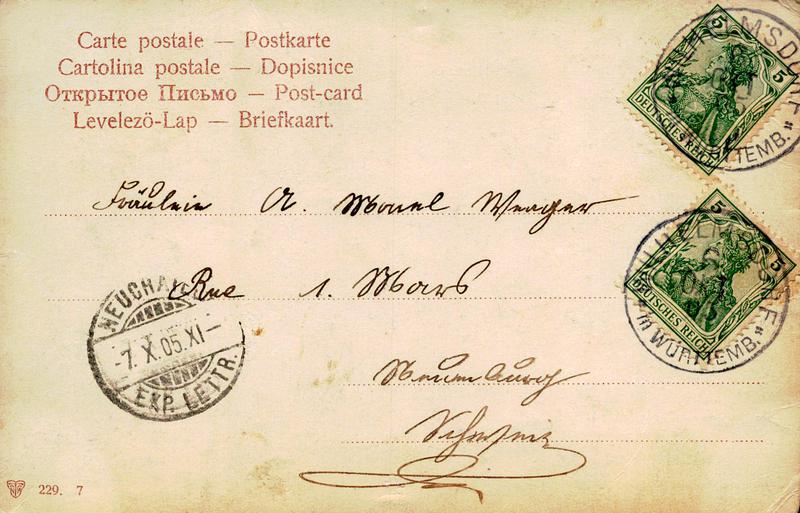 Carte postale — Postkarte
Cartolina postale — Dopisnice
Открытое Письмо — Post-card
Levelezö-Lap — Briefkaart.
5
5
DEUTSCHES REICH
WILHELMSDORF
OKT
WÜRTTEMB.
Fräulein A. Monel Wenger
Rue 1. Mars
Neuenburg
Schweiz
5
5
DEUTSCHES REICH
WILHELMSDORF
6 OKT
in WÜRTTEMB.
NEUCHATEL
-7.X.05.XI-
EXP. LETTR.
229. 7